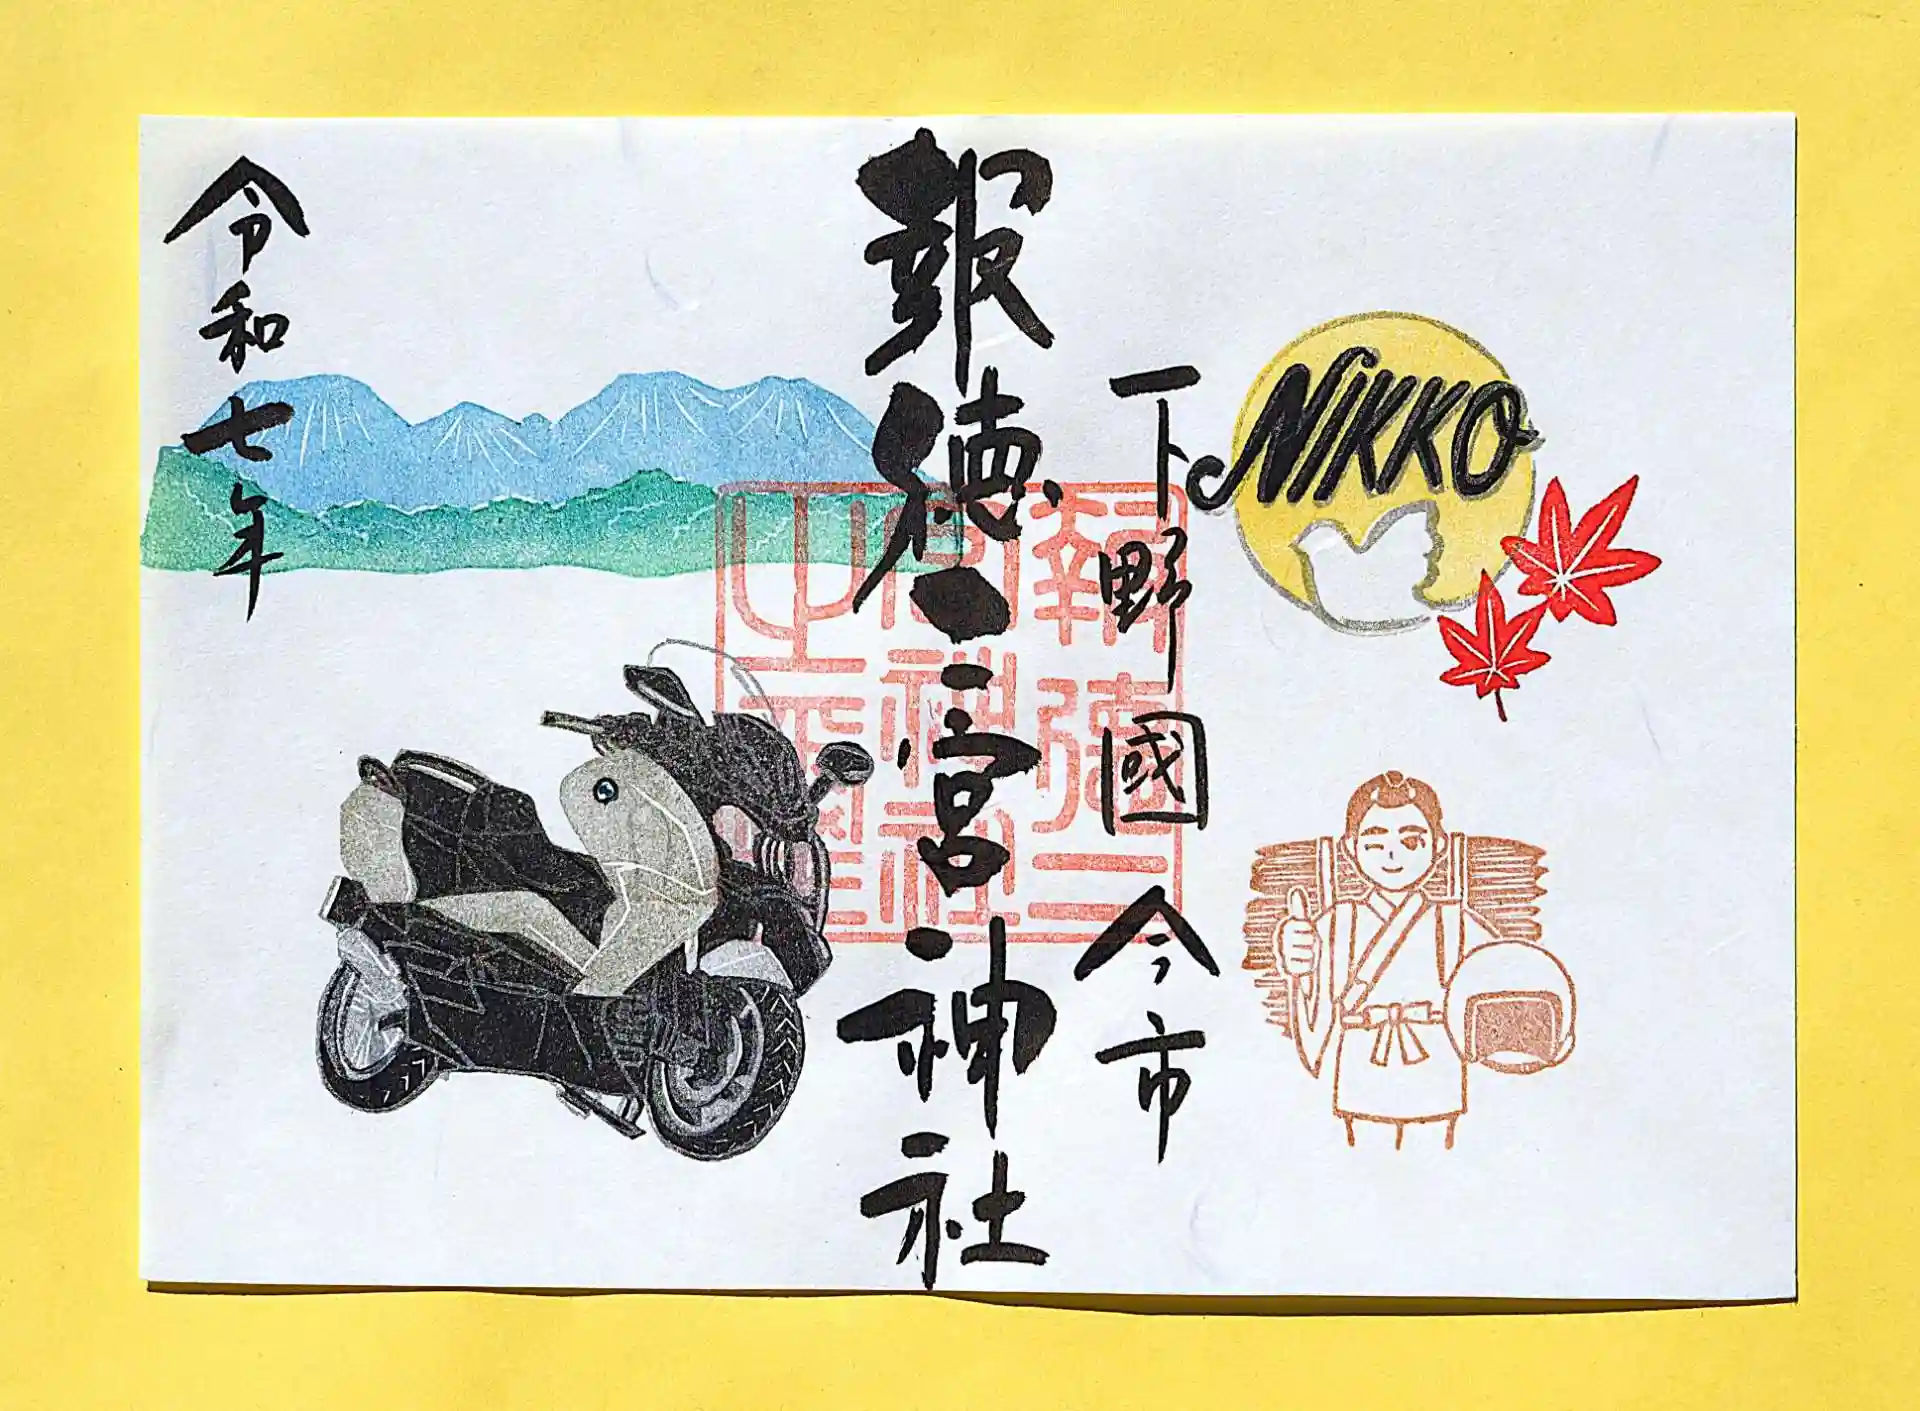 NIKKO
下野國 今市
報徳二宮神社
報徳二
宮神社
之璽
令和七年